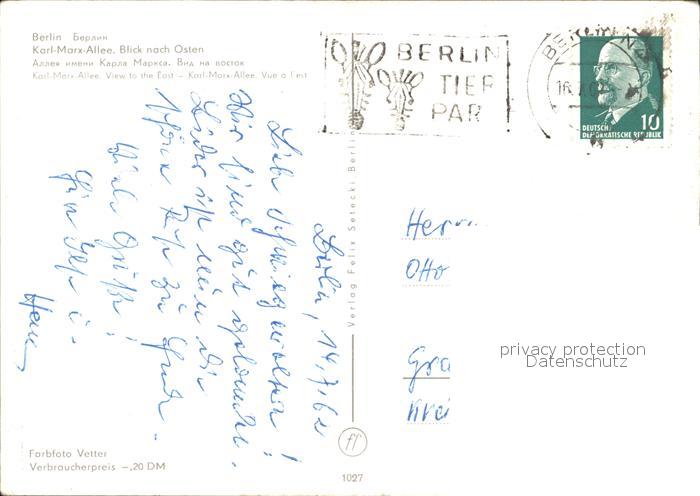 Berlin Берлин
Karl-Marx-Allee. Blick nach Osten
Аллея имени Карла Маркса. Вид на восток
Karl-Marx-Allee. View to the East – Karl-Marx-Allee. Vue a l'est
BERLIN
TIER
PAR
BERLIN
16.7.6
DEUTSCHE
DEMOKRATISCHE REPUBLIK
10
Berlin, 14.7.62
Liebe Schwiegereltern!
Wir sind gut
Leider ist nun die
schöne zu Ende.
Viele Grüße!
Verlag Felix Setecki Berlin
Herrn
Otto
Gra
Krei
privacy protection
Datenschutz
Farbfoto Vetter
Verbraucherpreis –,20 DM
1027